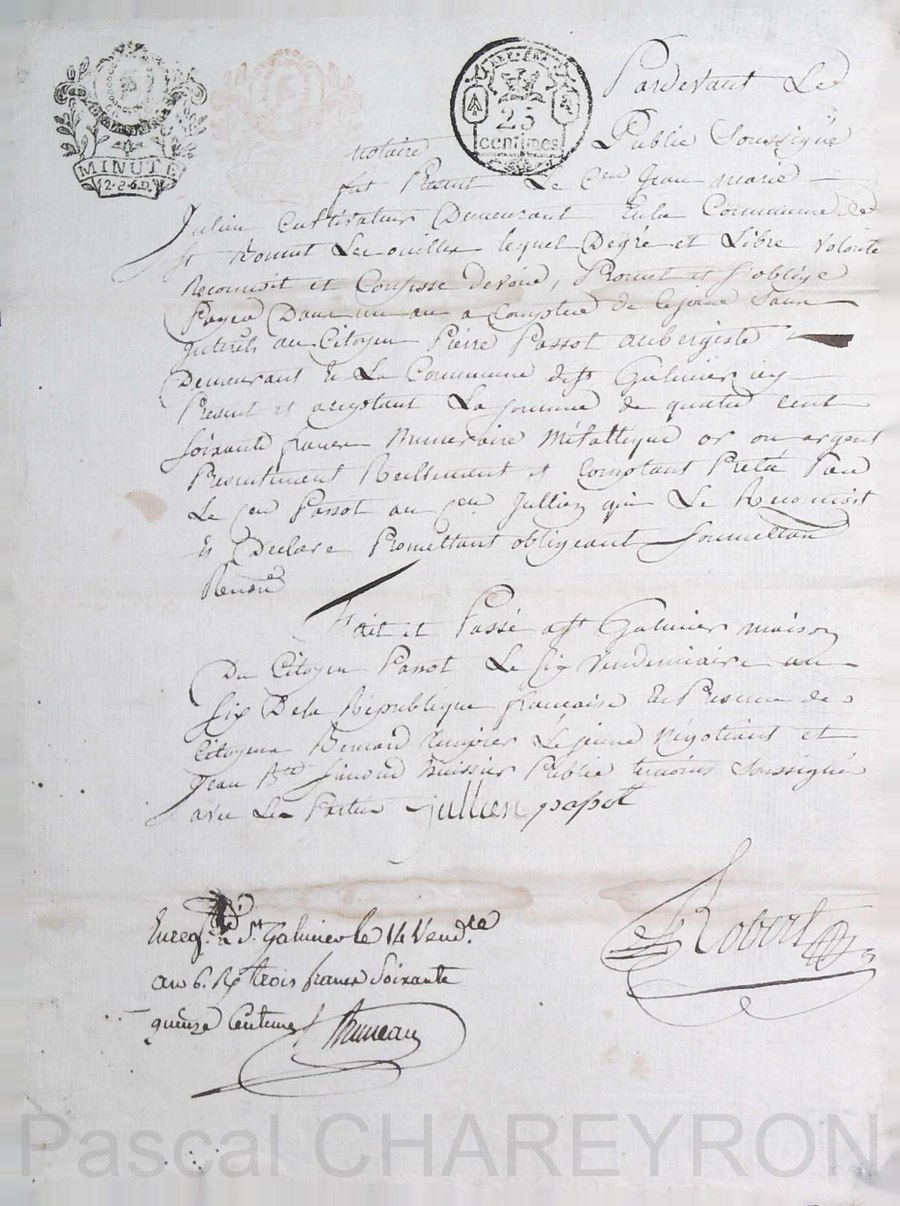 MINUTE
2.S.6.D.
25
centimes
Pardevant Le
notaire Public Soussigné
fut Present Le Cen Jean marie
Julien Cultivateur Demeurant En la Commune de
St Bonnet Les ouilles lequel De gré et Libre volonté
Reconnoit et Confesse devoir, Promet et s'oblige
Payer Dans un an a Compter de ce jour Sans
Interets au Citoyen Pierre Passot aubergiste
Demeurant En La Commune de St Galmier icy
Present et aceptant La somme de quatre cent
soixante francs Numeraire Métallique or ou argent
Presentement Reellement et Comptant Preté Par
Le Cen Passot au Cen Jullien qui Le Reconnoit
Et Declare Promettant obligeant soumettant
Renonc
Fait et Passé a St Galmier maison
Du Citoyen Passot Le six vendemiaire an
six De la République francaise En Presence des
Citoyens Bernard Le jeune Négotiant et
Jean Bte Simond huissier Public temoins soussignés
avec Les Parties jullien passot
Robert
Enreg. à St Galmier le 14 Vend.re
an 6. R. trois francs Soixante
quinze Centimes Bruneau
Pascal CHAREYRON